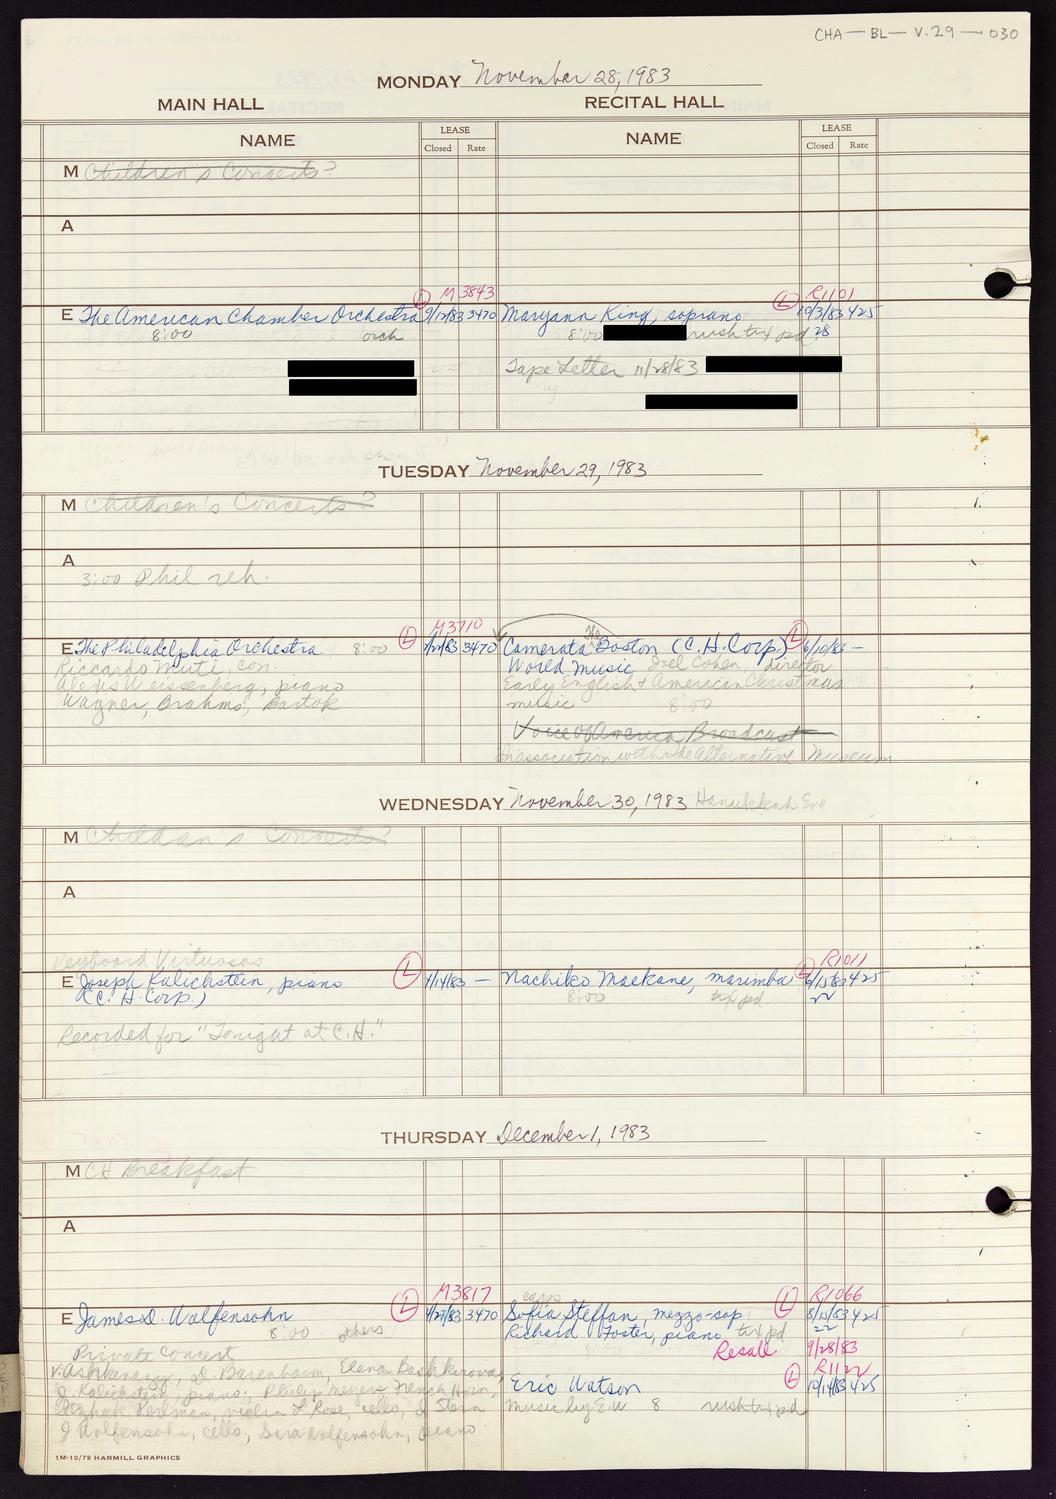 CHA-BL-V.29-030
MONDAY November 28, 1983
MAIN HALL RECITAL HALL
NAME LEASE Closed Rate NAME LEASE Closed Rate
M Children's Concerts?
A
M3843 R1101
E The American Chamber Orchestra L 9/12/83 3470 Maryann King, soprano L 10/3/83 425
8:00 orch 8:00 rush trx pd 28
Tape Letter 11/28/83
TUESDAY November 29, 1983
M Children's Concerts?
A
3:00 Phil reh.
M3710
E The Philadelphia Orchestra 8:00 L 3470 The Camerata Boston (C.H.Corp.) L 6/10/83 —
Riccardo Muti, con. World Music Joel Cohen, director
Alexis Weissenberg, piano Early English & American Christmas
Wagner, Brahms, Bartok music 8:00
Voice of America Broadcast
In association with The Alternative Museum
WEDNESDAY November 30, 1983 Hanukkah Eve
M Children's Concerts?
A
Keyboard Virtuosos R1011
E Joseph Kalichstein, piano L 4/14/83 — Nachiko Maekane, marimba L 6/15/83 425
(C.H. Corp.) 8:00 trx pd 22
Recorded for "Tonight at C.H."
THURSDAY December 1, 1983
M CH Breakfast
A
M3817 R1066
E James D. Wolfensohn L 4/27/83 3470 Sofia Steffan, mezzo-sop L 8/15/83 425
8:00 others Richard Foster, piano trx pd 22
Private Concert Resale 9/28/83
V. Ashkenazy, D. Barenboim, Elena Bashkirova, R1122
J. Kalichstein, piano; Philip Meyers French Horn, Eric Watson L 10/14/83 425
Itzhak Perlman, violin L Rose, cello, I Stern Music by E.W 8 rush trx pd
J Wolfensohn, cello, Sara Wolfensohn, piano
1M-10/79 HARMILL GRAPHICS